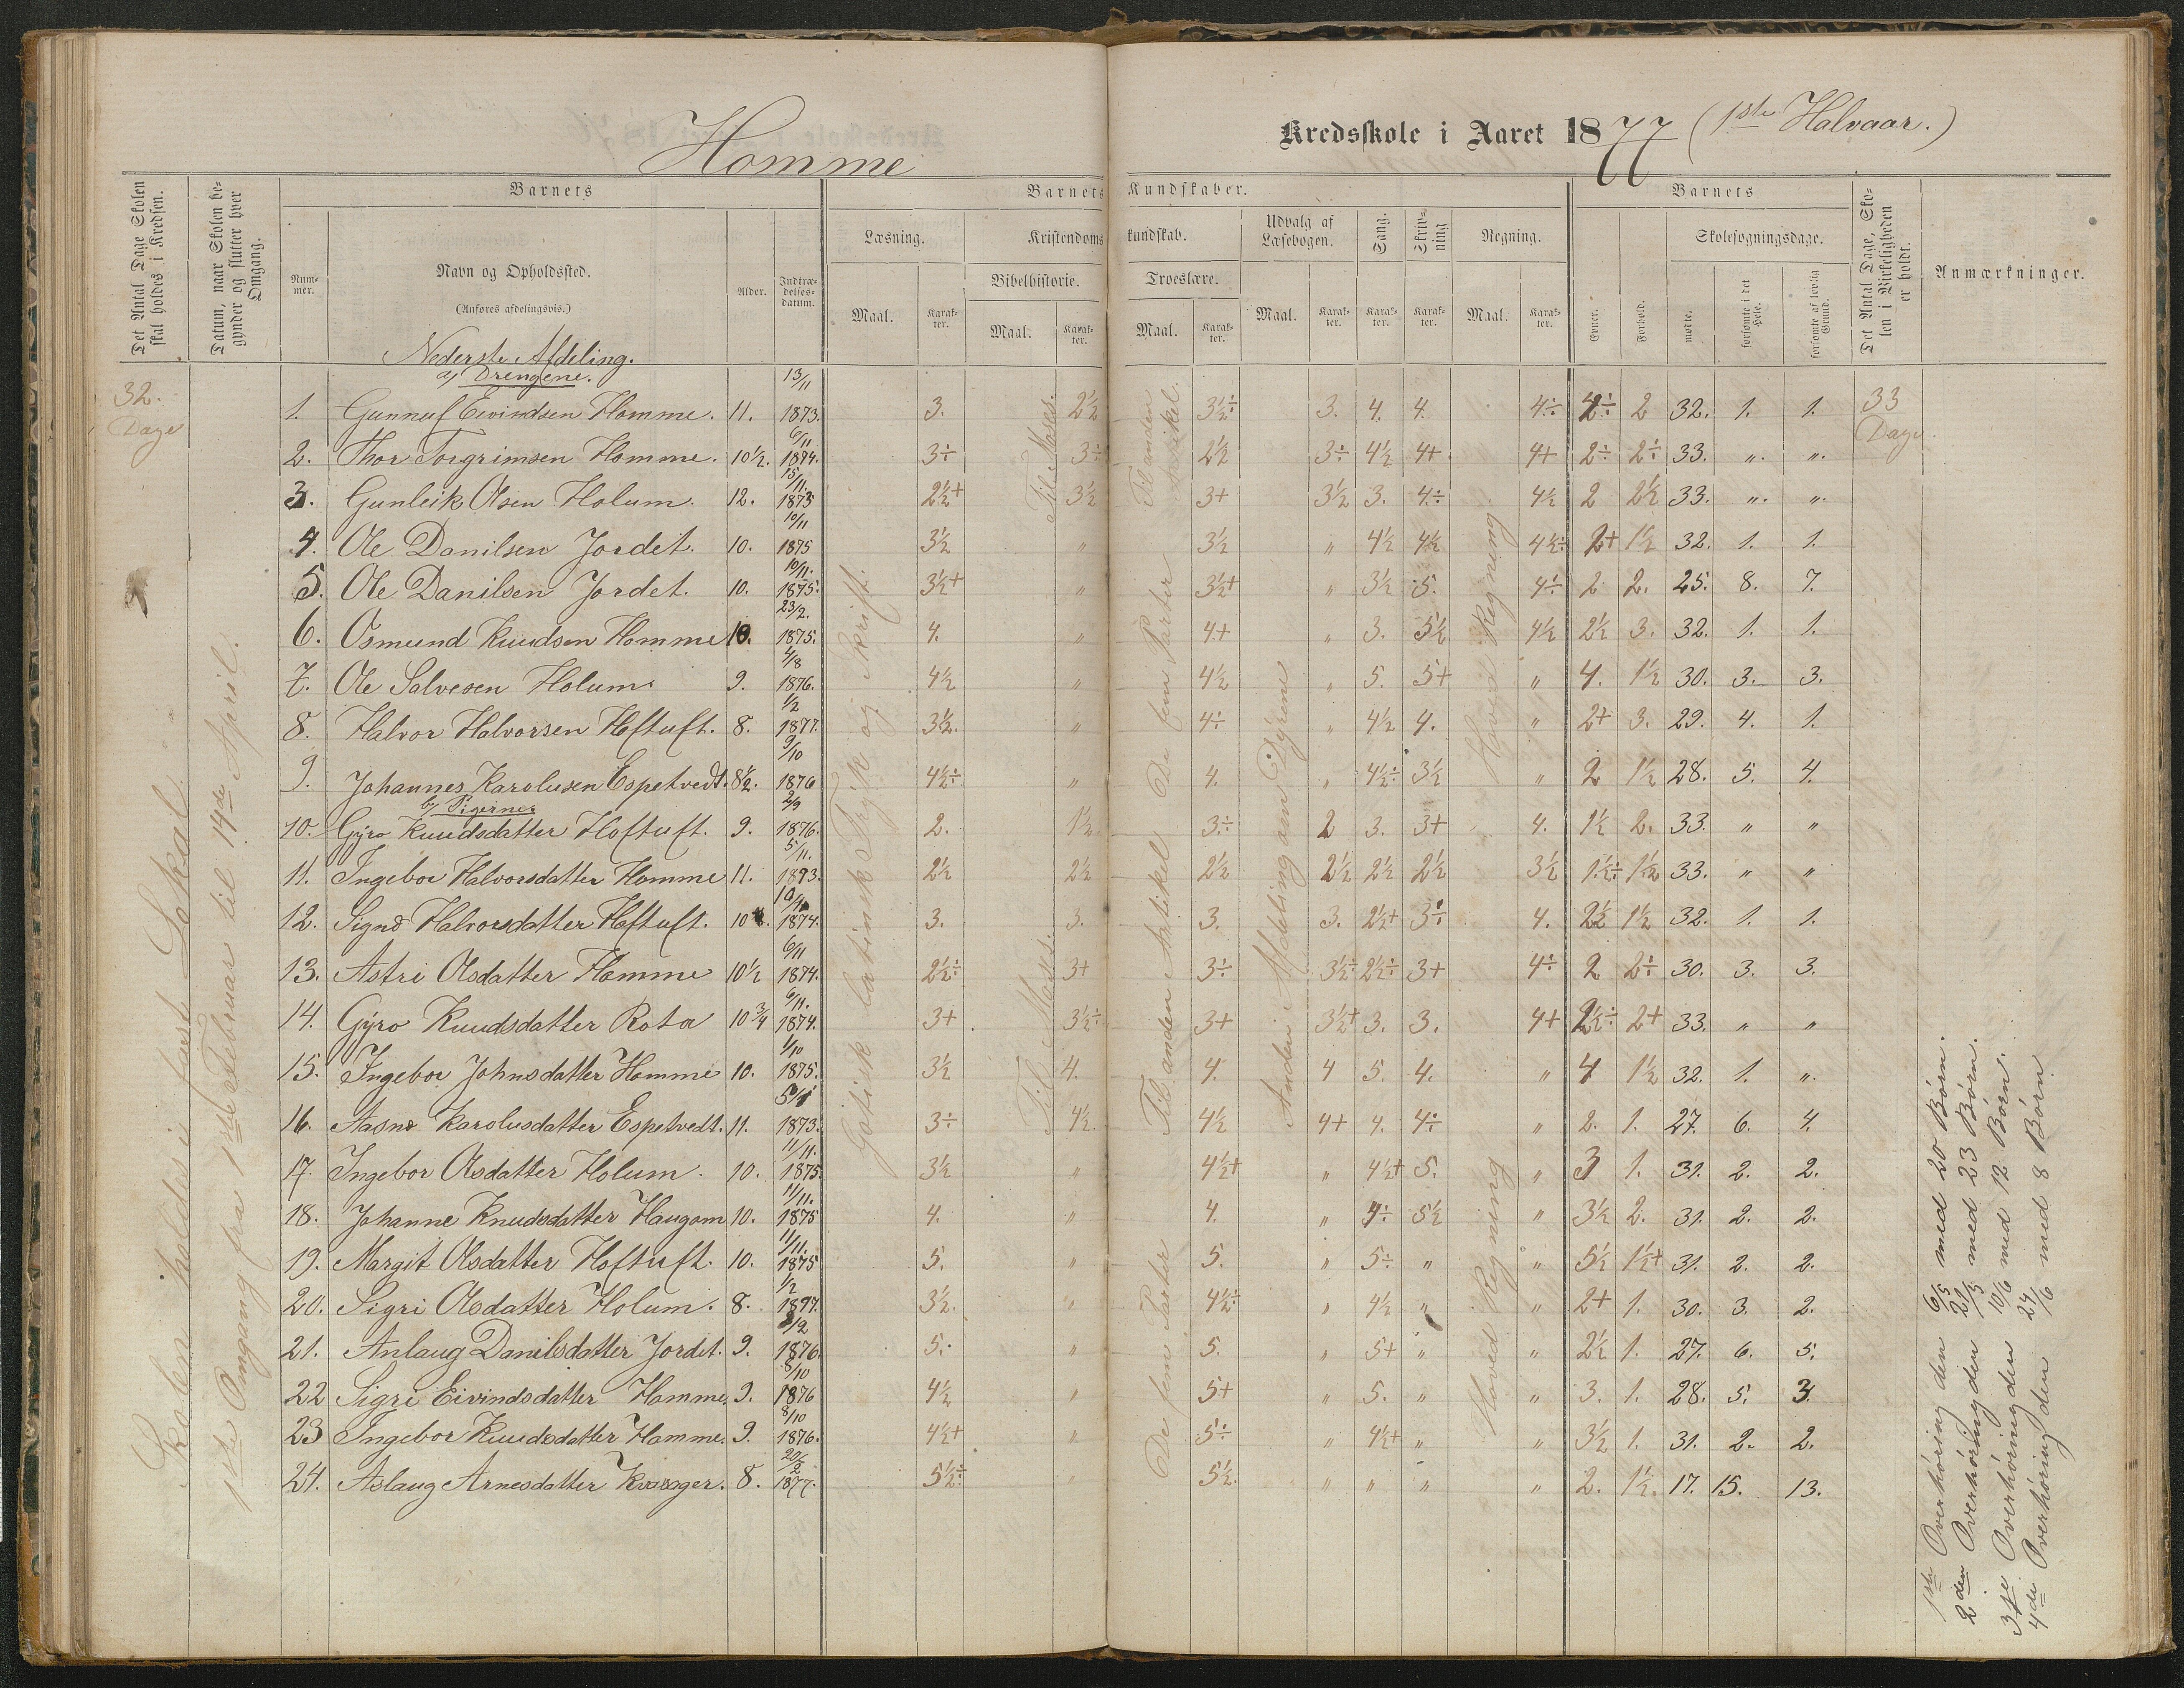 Homme Kredsskole i Aaret 1877 (1ste Halvaar.)
Det Antal Dage Skolen skal holdes i Kredsen.
Datum, naar Skolen begynder og slutter hver Omgang.
Barnets
Nummer.
Navn og Opholdssted.
(Anføres afdelingsvis.)
Alder.
Indtrædelsesdatum.
Barnets Kundskaber.
Læsning.
Maal.
Karakter.
Kristendomskundskab.
Bibelhistorie.
Maal.
Karakter.
Troeslære.
Maal.
Karakter.
Udvalg af Læsebogen.
Maal.
Karakter.
Sang.
Karakter.
Skrivning
Karakter.
Regning.
Maal.
Karakter.
Barnets
Evner.
Forhold.
Skolesøgningsdage.
mødte.
forsømte i det Hele.
forsømte af lovlig Grund.
Det Antal Dage, Skolen i Virkeligheden er holdt.
Anmærkninger.
32. Dage
Skolen holdes i fast Lokal.
1ste Omgang fra 1ste Februar til 14de April.
Nederste Afdeling.
a) Drengene.
1. Gunnuf Eivindsen Homme. 11. 13/11 1873. 3. 2½ 3½÷ 3. 4. 4. 4÷ 2÷ 2 32. 1. 1. 33 Dage.
2. Thor Torgrimsen Homme. 10½. 6/11 1874. 3÷ 3÷ 2½ 3÷ 4½ 4+ 4+ 2÷ 2÷ 33. " "
3. Gunleik Olsen Holum. 12. 15/11. 1873 2½+ 3½ 3+ 3½ 3. 4÷ 4½ 2 2½ 33. " "
4. Ole Danilsen Jordet. 10. 10/11 1875 3½ " 3½ " 4½ 4½ 4½÷ 2+ 1½ 32. 1. 1.
5. Ole Danilsen Jordet. 10. 10/11. 1875. 3½+ " 3½+ " 3½ 5. 4÷ 2 2. 25. 8. 7.
6. Osmund Knudsen Homme 10. 23/2. 1875. 4. " 4+ " 3. 5½ 4½ 2½ 3. 32. 1. 1.
7. Ole Salvesen Holum. 9. 4/8 1876. 4½ " 4½ " 5. 5+ " 4. 1½ 30. 3. 3.
8. Halvor Halvorsen Hoftuft. 8. 1/2 1877. 3½. " 4÷ " 4½ 4. " 2+ 3. 29. 4. 1.
9. Johannes Karolusen Espetvedt. 8½. 9/10 1876 4½÷ " 4. " 4½÷ 3½ " 2 1½ 28. 5. 4.
b) Pigerne
10. Gyro Knudsdatter Hoftuft. 9. 2/9 1876. 2. 1½ 3÷ 2 3. 3+ 4. 1½ 2. 33. " "
11. Ingebor Halvorsdatter Homme 11. 5/11. 1873. 2½ 2½ 2½ 2½ 2½ 2½ 3½ 1½÷ 1½ 33. " "
12. Signe Halvorsdatter Hoftuft. 10 1874. 3. 3. 3. 3. 2½+ 3÷ 4. 2½ 1½ 32. 1. 1.
13. Astri Olsdatter Homme 10½ 6/11 1874. 2½÷ 3+ 3÷ 3½÷ 2½÷ 3+ 4÷ 2 2÷ 30. 3. 3.
14. Gyro Knudsdatter Rota 10¾ 6/11. 1874. 3+ 3½÷ 3+ 3½+ 3. 3. 4+ 2½÷ 2+ 33. " "
15. Ingebor Johnsdatter Homme 10. 1/10 1875. 3½ 4. 4. 4 5. 4. " 4 1½ 32. 1. "
16. Aasne Karolusdatter Espetvedt. 11. 5/11 1873. 3÷ 4½ 4½ 4+ 4. 4÷ " 2. 1. 27. 6. 4.
17. Ingebor Olsdatter Holum. 10. 11/11. 1875. 3½ " 4½+ " 4½+ 5. " 3 1. 31. 2. 2.
18. Johanne Knudsdatter Haugom 10. 11/11. 1875 4. " 4. " 4÷ 5½ " 3½ 2. 31. 2. 2.
19. Margit Olsdatter Hoftuft. 10. 11/11. 1875 5. " 5. " 5÷ " " 5½ 1½+ 31. 2. 2.
20. Sigri Olsdatter Holum. 8. 1/2 1877. 3½. " 4½÷ " 4½ " " 2+ 1. 30. 3. 2.
21. Anlaug Danilsdatter Jordet. 9. 1876. 5. " 5. " 5+ " " 2½ 1. 27. 6. 5.
22 Sigri Eivindsdatter Homme. 9. 8/10 1876 4½ " 5+ " 5. " " 3. 1. 28. 5. 3.
23 Ingebor Knudsdatter Homme. 9. 8/10 1876. 4½+ " 5÷ " 4½+ " " 3½ 1. 31. 2. 2.
24. Aslaug Arnesdatter 8. 20/2 1877. 5½÷ " 5½. " " " " 2. 1½. 17. 15. 13.
Gotisk latinsk Tryk og Skrift.
Til Moses.
Til Moses.
Til anden Artikel.
De fem Parter
Til anden Artikel
De fem Parter
Anden Afdeling om Dyrene
Hoved Regning
Hoved Regning
1ste Overhøring den 6/5 med 20 Børn.
2den Overhøring den 27/5 med 23 Børn.
3die Overhøring den 10/6 med 12 Børn.
4de Overhøring den 24/6 med 8 Børn